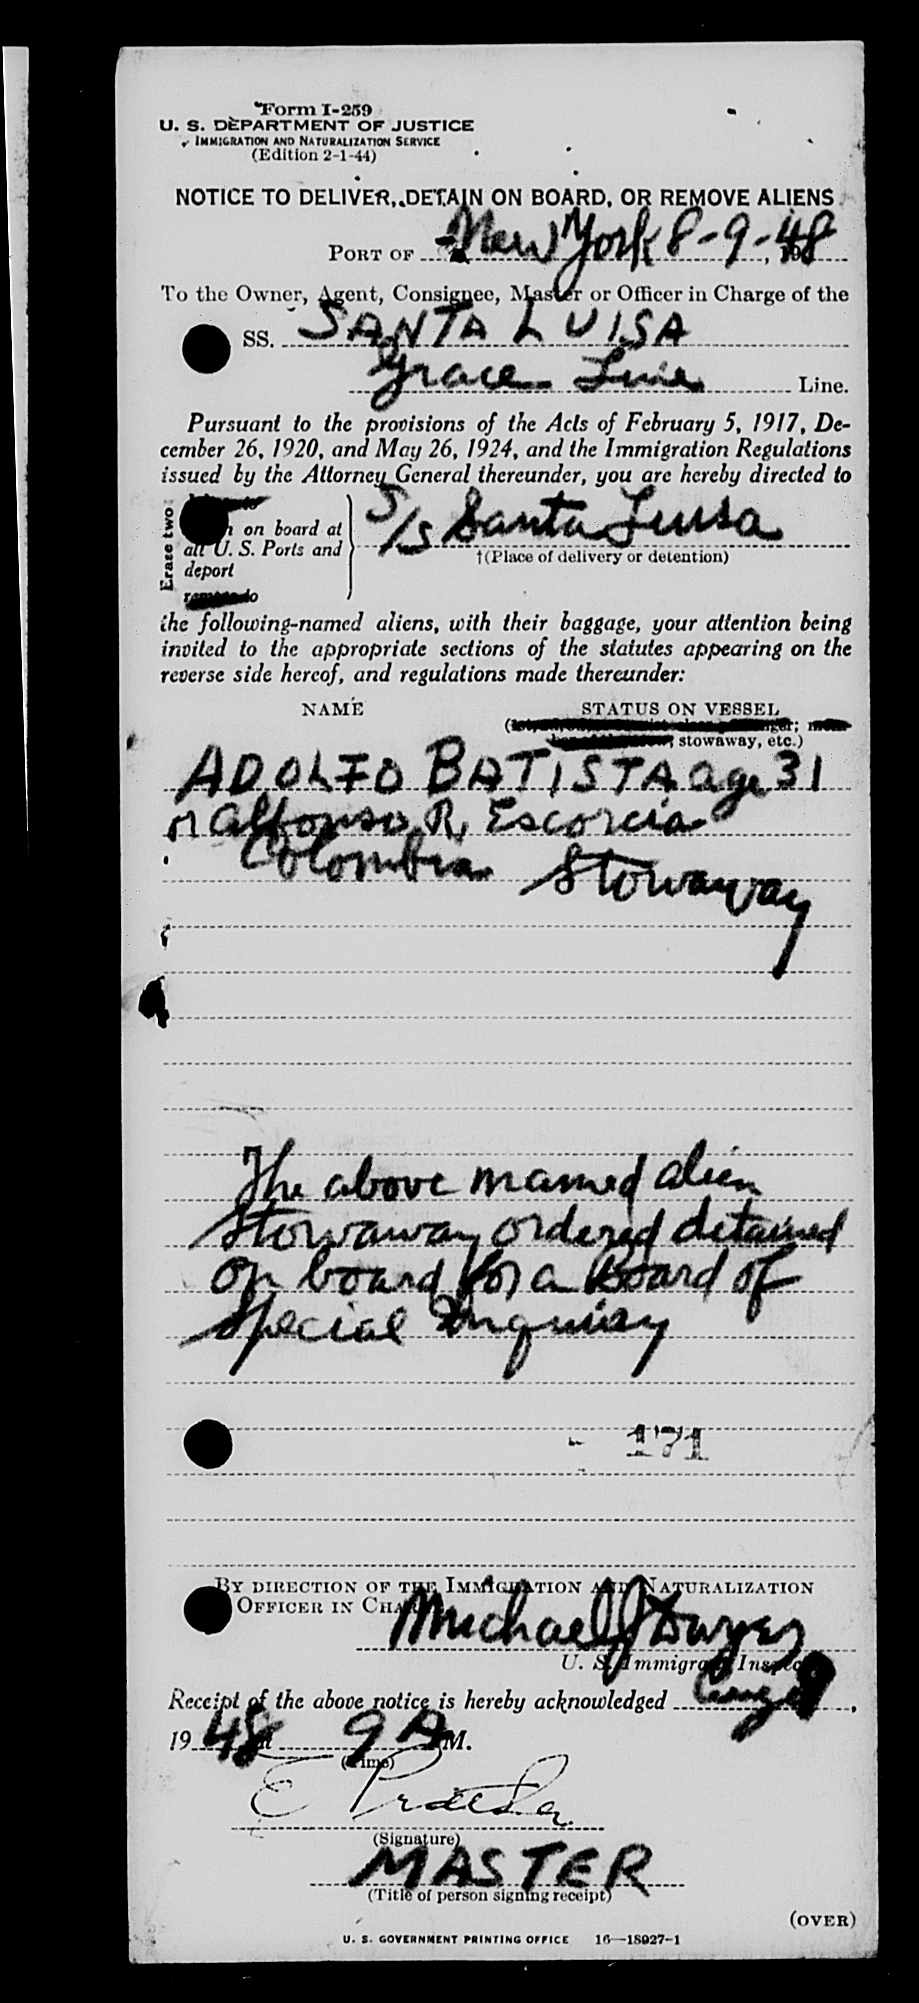 Form I-259
U. S. DEPARTMENT OF JUSTICE
IMMIGRATION AND NATURALIZATION SERVICE
(Edition 2-1-44)
NOTICE TO DELIVER, DETAIN ON BOARD, OR REMOVE ALIENS
PORT OF New York 8-9-48, 19
To the Owner, Agent, Consignee, Master or Officer in Charge of the
SS. SANTA LUISA
Grace Line Line.
Pursuant to the provisions of the Acts of February 5, 1917, De-
cember 26, 1920, and May 26, 1924, and the Immigration Regulations
issued by the Attorney General thereunder, you are hereby directed to
Erase two
on board at
all U. S. Ports and
deport
S/S Santa Luisa
†(Place of delivery or detention)
the following-named aliens, with their baggage, your attention being
invited to the appropriate sections of the statutes appearing on the
reverse side hereof, and regulations made thereunder:
NAME STATUS ON VESSEL
stowaway, etc.)
ADOLFO BATISTA age 31
or Alfonso R. Escorcia
Colombia Stowaway
The above named alien
Stowaway ordered detained
on board for a Board of
Special Inquiry
171
BY DIRECTION OF THE IMMIGRATION AND NATURALIZATION
OFFICER IN CHARGE
Michael J Dwyer
U. S. Immigrant Inspector
Receipt of the above notice is hereby acknowledged Aug 9,
19 48 at 9 A M.
(Time)
(Signature)
MASTER
(Title of person signing receipt)
(OVER)
U. S. GOVERNMENT PRINTING OFFICE 16—18927-1